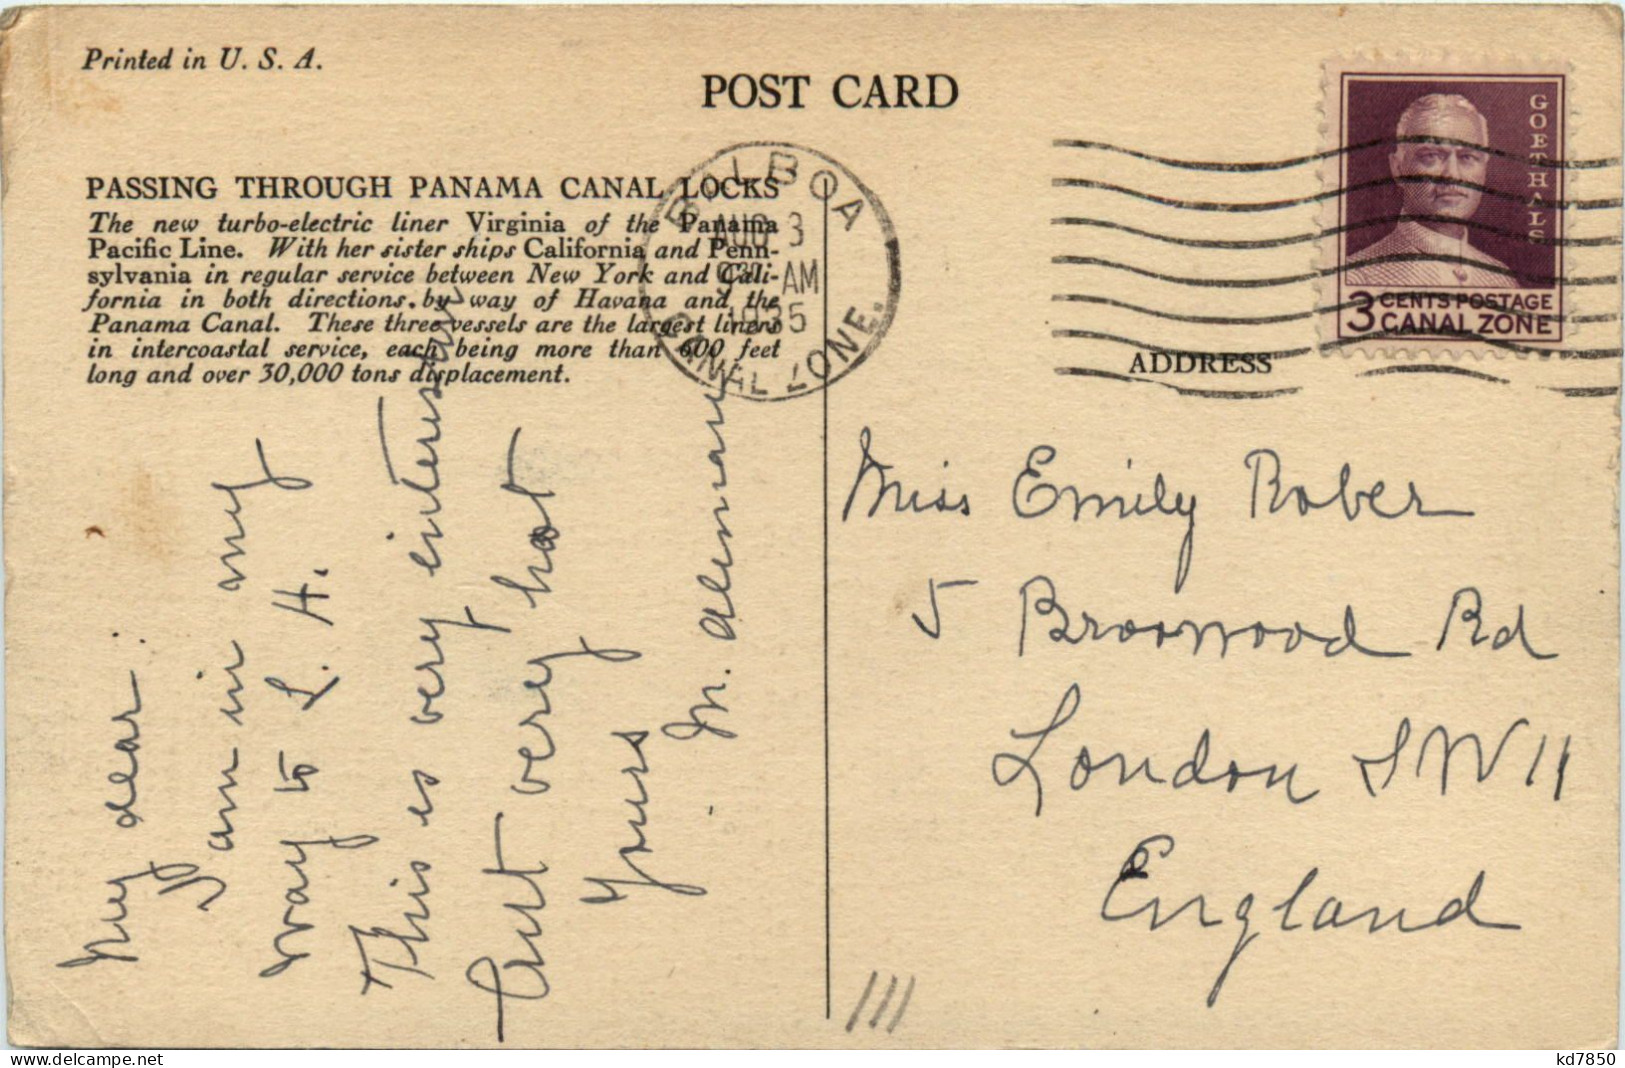 Printed in U. S. A.
POST CARD
PASSING THROUGH PANAMA CANAL LOCKS
The new turbo-electric liner Virginia of the Panama
Pacific Line. With her sister ships California and Penn-
sylvania in regular service between New York and Cali-
fornia in both directions, by way of Havana and the
Panama Canal. These three vessels are the largest liners
in intercoastal service, each being more than 600 feet
long and over 30,000 tons displacement.
BALBOA
AUG 3
930 AM
1935
CANAL ZONE.
GOETHALS
3 CENTS POSTAGE
CANAL ZONE
ADDRESS
My dear:
I am in my
way to L. A.
This is very
but very hot
Yours
M. Aleman
Miss Emily Rober
5 Broowood Rd
London SW 11
England
111
kd7850
delcampe.net